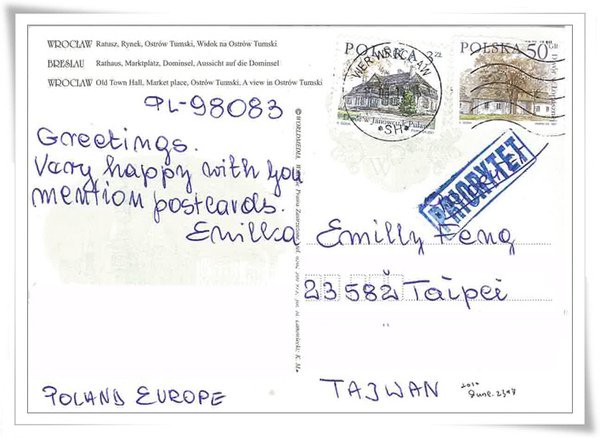 WROCŁAW Ratusz, Rynek, Ostrów Tumski, Widok na Ostrów Tumski
BRESLAU Rathaus, Marktplatz, Dominsel, Aussicht auf die Dominsel
WROCŁAW Old Town Hall, Market place, Ostrów Tumski, A view in Ostrów Tumski
PL-98083
Greetings.
Vary happy with you
mention postcards.
Emilka
POLAND EUROPE
© WORLDMEDIA
POLSKA 2 ZŁ
WER WROCŁAW
*SH*
POLSKA 50 GR
PRIORYTET
Emilly Feng
23582 Taipei
TAJWAN
2010
June. 23